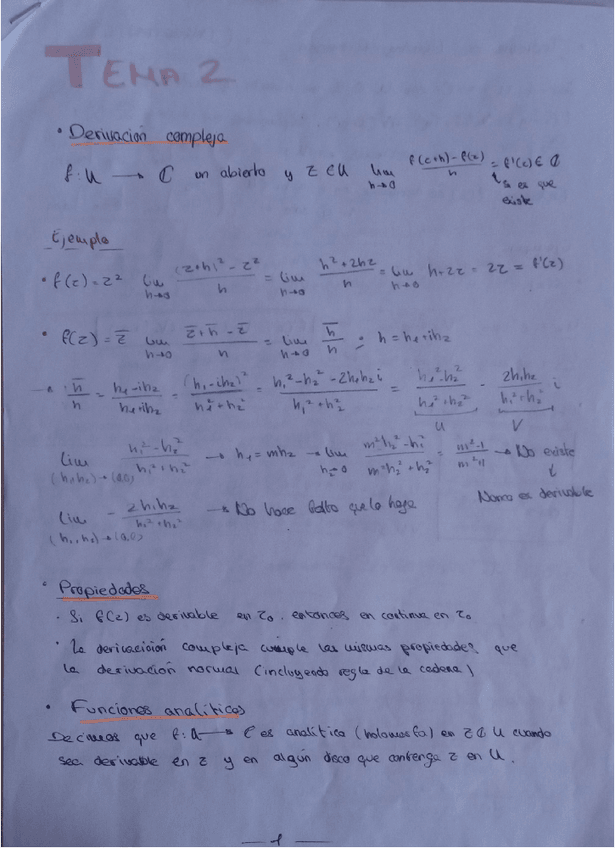 TEMA 2
• Derivación compleja
f: U → ℂ un abierto y z ∈ U lim h→0 f(z+h) - f(z) / h = f'(z) ∈ ℂ
Si es que existe
Ejemplo
• f(z) = z² lim h→0 (z+h)² - z² / h = lim h→0 h² + 2hz / h = lim h→0 h + 2z = 2z = f'(z)
• f(z) = z̅ lim h→0 z̅ + h̅ - z̅ / h = lim h→0 h̅ / h = h = h₁ + ih₂
h̅ / h = h₁ - ih₂ / h₁ + ih₂ = (h₁ - ih₂)² / h₁² + h₂² = h₁² - h₂² - 2h₁h₂i / h₁² + h₂² = h₁² - h₂² / h₁² + h₂² - 2h₁h₂ / h₁² + h₂² i
U V
lim (h₁,h₂)→(0,0) h₁² - h₂² / h₁² + h₂² → h₁ = mh₂ → lim h₂→0 m²h₂² - h₂² / m²h₂² + h₂² = m² - 1 / m² + 1 → No existe
derivable
lim (h₁,h₂)→(0,0) - 2h₁h₂ / h₁² + h₂² → No hace falta que lo haga
• Propiedades
· Si f(z) es derivable en z₀, entonces en continua en z₀
· La derivacición compleja cumple las mismas propiedades que
la derivación normal (incluyendo regla de la cadena)
• Funciones analíticas
Decimos que f: → ℂ es analítica (holomorfa) en z U cuando
sea derivable en z y en algún disco que contenga z en U.
— 1 —